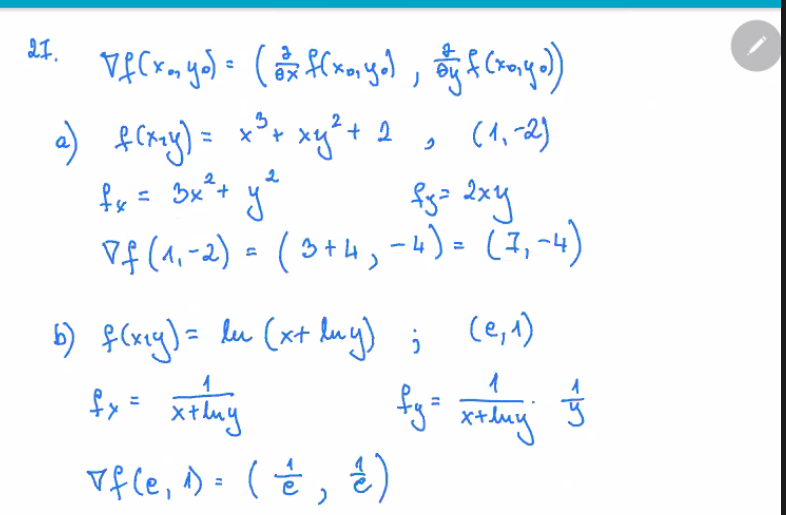 27. ∇f(x₀, y₀) = (∂/∂x f(x₀, y₀), ∂/∂y f(x₀, y₀))
a) f(x,y) = x³ + xy² + 2 , (1, -2)
fₓ = 3x² + y² f_y = 2xy
∇f(1, -2) = (3+4, -4) = (7, -4)
b) f(x,y) = ln(x + ln y) ; (e, 1)
fₓ = 1/(x + ln y) f_y = 1/(x + ln y) · 1/y
∇f(e, 1) = (1/e, 1/e)